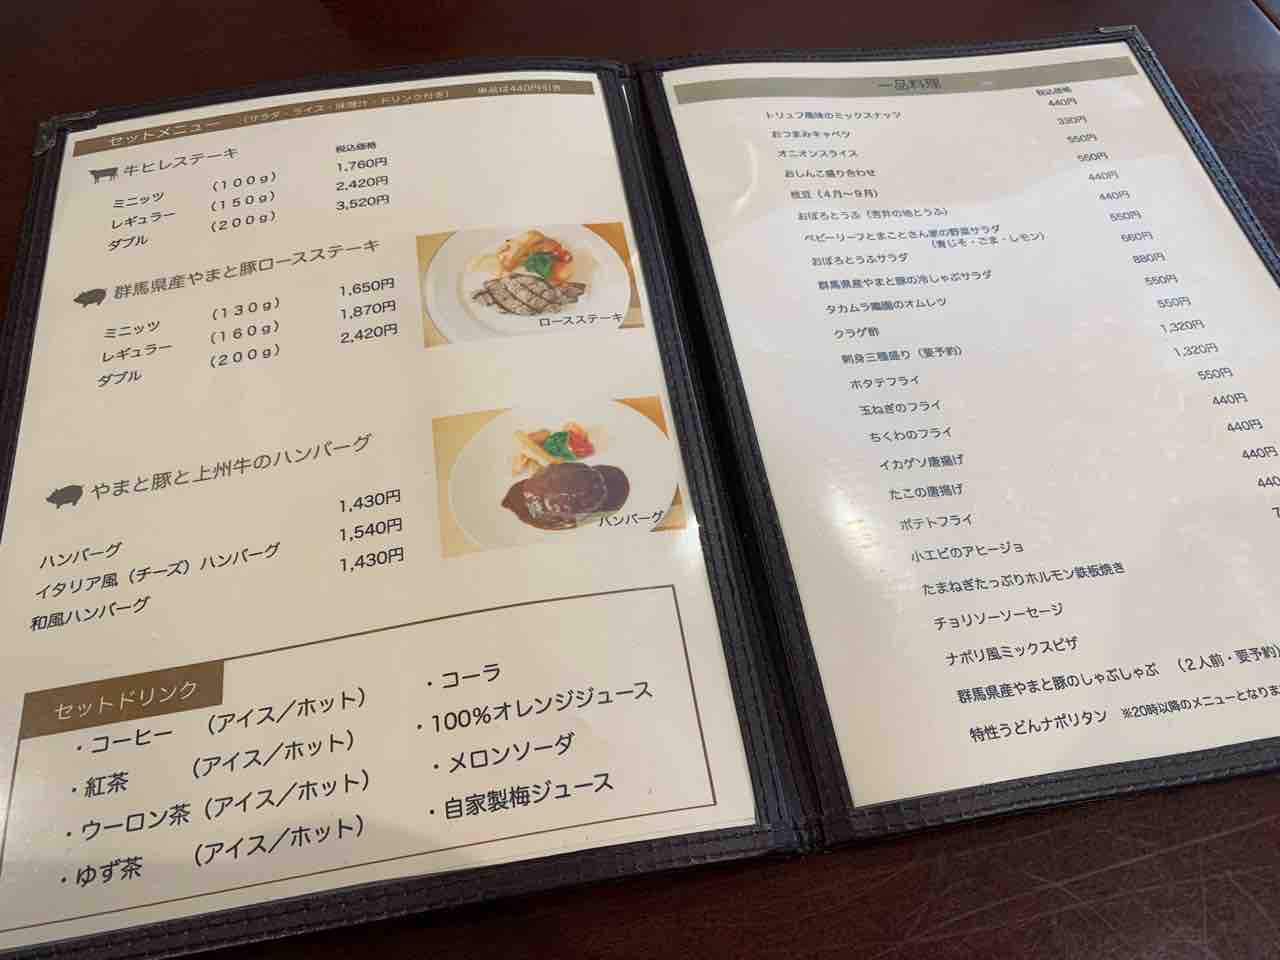 セットメニュー （サラダ・ライス・味噌汁・ドリンク付き） 単品は440円引き
牛ヒレステーキ 税込価格
ミニッツ （100g） 1,760円
レギュラー （150g） 2,420円
ダブル （200g） 3,520円
群馬県産やまと豚ロースステーキ
ミニッツ （130g） 1,650円
レギュラー （160g） 1,870円
ダブル （200g） 2,420円
ロースステーキ
やまと豚と上州牛のハンバーグ
ハンバーグ 1,430円
イタリア風（チーズ）ハンバーグ 1,540円
和風ハンバーグ 1,430円
ハンバーグ
セットドリンク
・コーヒー （アイス／ホット）
・紅茶 （アイス／ホット）
・ウーロン茶（アイス／ホット）
・ゆず茶 （アイス／ホット）
・コーラ
・100%オレンジジュース
・メロンソーダ
・自家製梅ジュース
一品料理
税込価格
トリュフ風味のミックスナッツ 440円
おつまみキャベツ 330円
オニオンスライス 550円
おしんこ盛り合わせ 550円
枝豆（4月～9月） 440円
おぼろとうふ（吉井の地とうふ） 440円
ベビーリーフとまことさん家の野菜サラダ 550円
（青じそ・ごま・レモン）
おぼろとうふサラダ 660円
群馬県産やまと豚の冷しゃぶサラダ 880円
タカムラ農園のオムレツ 550円
クラゲ酢 550円
刺身三種盛り（要予約） 1,320円
ホタテフライ 1,320円
玉ねぎのフライ 550円
ちくわのフライ 440円
イカゲソ唐揚げ 440円
たこの唐揚げ 440円
ポテトフライ 440
小エビのアヒージョ
たまねぎたっぷりホルモン鉄板焼き
チョリソーソーセージ
ナポリ風ミックスピザ
群馬県産やまと豚のしゃぶしゃぶ （2人前・要予約）
特性うどんナポリタン ※20時以降のメニューとなりま